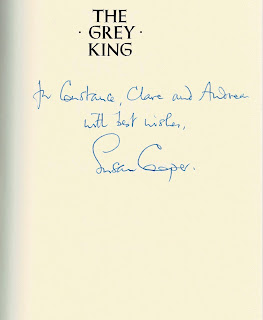 THE
· GREY ·
KING
for Constance, Clare and Andrew
with best wishes,
Susan Cooper.